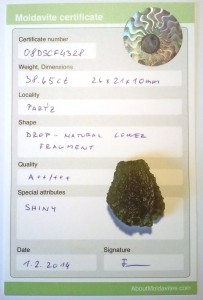 Moldavite certificate
Certificate number
08DSCF4328
Weight, Dimensions
38.65ct 26x21x10mm
Locality
Shape
DROP - NATURAL LOWER
FRAGMENT
Quality
A++/+++
Special attributes
SHINY
Date
Signature
1.2.2014
AboutMoldavites.com